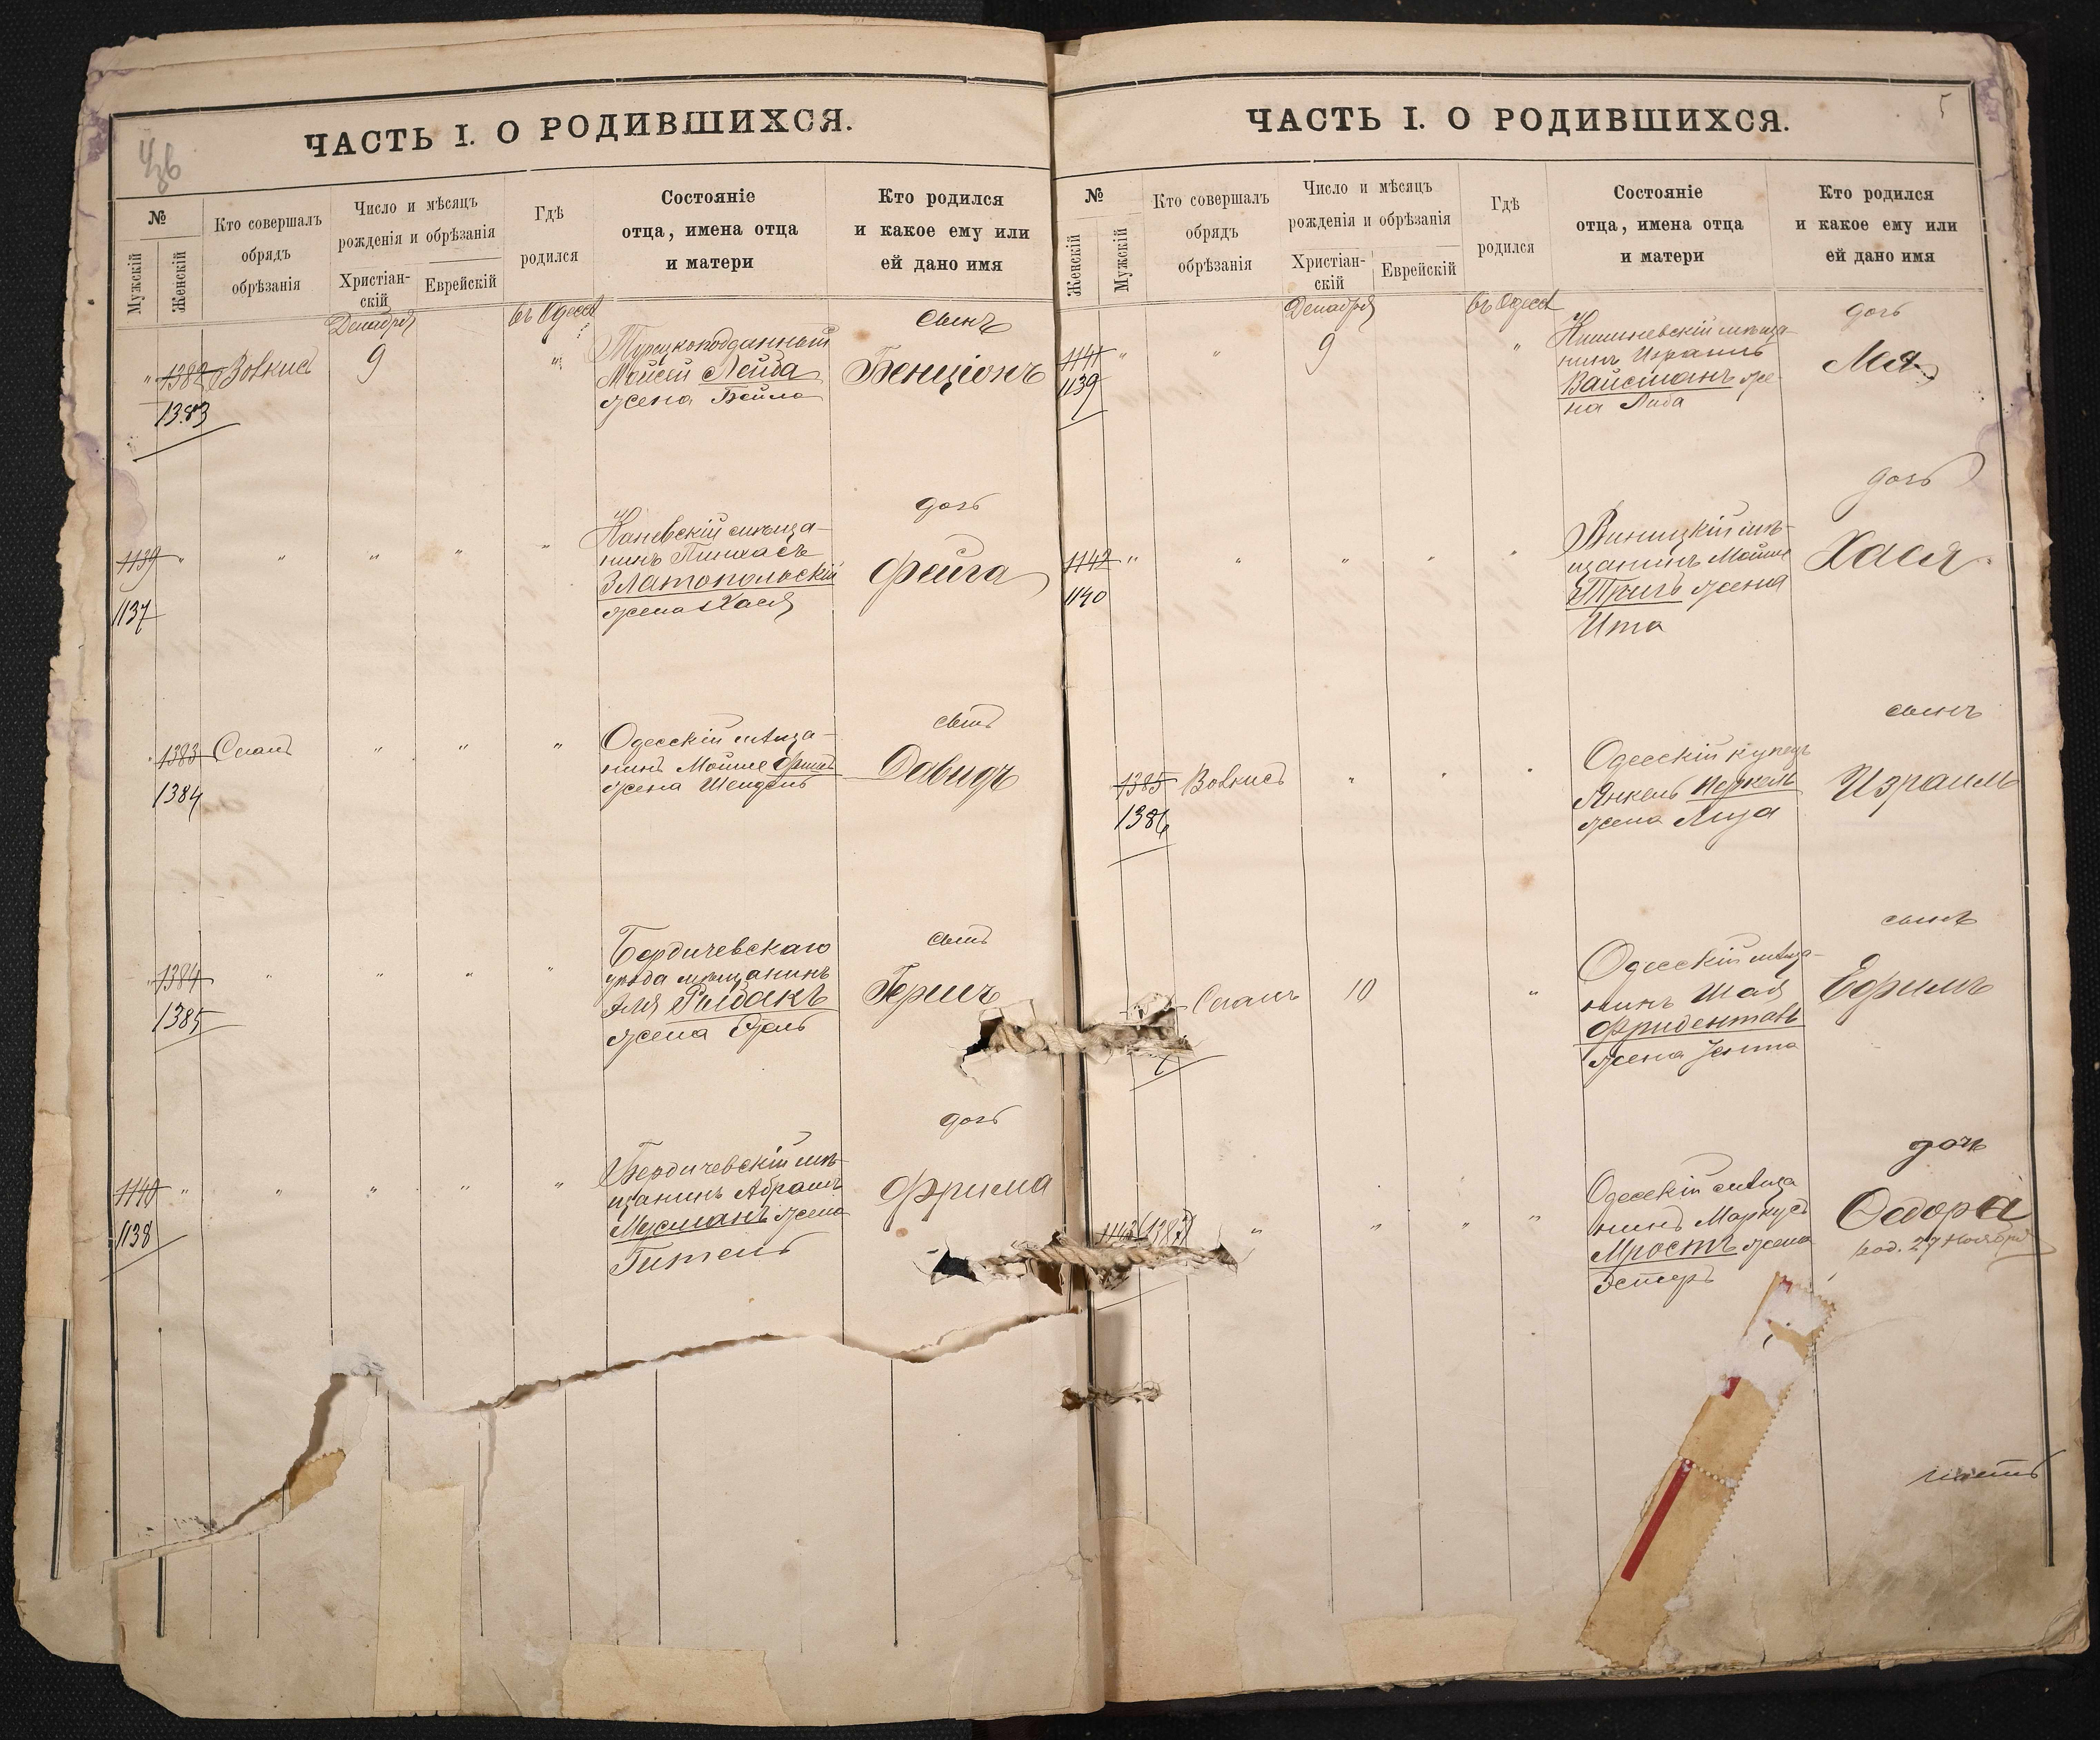 ЧАСТЬ I. О РОДИВШИХСЯ.
№
Мужскій
Женскій
Кто совершалъ
обрядъ
обрѣзанія
Число и мѣсяцъ
рожденія и обрѣзанія
Христіан-
скій
Еврейскій
Гдѣ
родился
Состояніе
отца, имена отца
и матери
Кто родился
и какое ему или
ей дано имя
Декабря
въ Одессѣ
1382
1383
Вовкись
9
Турецкоподданный
Мойсей Лейба
жена Бейла
сынъ
Бенціонъ
1139
1137
Каневскій мѣща-
нинъ Пинхасъ
Златопольскій
жена Хася
дочь
Фейга
1383
1384
Одесскій мѣща-
нинъ Мойше
жена Шейндель
сынъ
Давидъ
1384
1385
Бердичевскаго
уѣзда мѣщанинъ
жена
сынъ
Гершъ
1140
1138
Бердичевскій мѣ-
щанинъ Абрамъ
жена
Гитель
дочь
Фрима
ЧАСТЬ I. О РОДИВШИХСЯ.
5
№
Женскій
Мужескій
Кто совершалъ
обрядъ
обрѣзанія
Число и мѣсяцъ
рожденія и обрѣзанія
Христіан-
скій
Еврейскій
Гдѣ
родился
Состояніе
отца, имена отца
и матери
Кто родился
и какое ему или
ей дано имя
Декабря
въ Одессѣ
1141
1139
9
Кишиневскій мѣща-
нинъ Израиль
Вайсманъ же-
на Либа
дочь
Лея
1142
1140
Виницкій мѣ-
щанинъ Мойше
жена
Ита
дочь
Хася
1385
1386
Вовкись
Одесскій купецъ
Янкель Перкель
жена Лиза
сынъ
Израиль
10
Одесскій мѣща-
нинъ Шая
Фриденталь
жена Зента
сынъ
Ефимъ
1143
Одесскій мѣща
нинъ Маркусъ
жена
Эстеръ
дочь
Федора
род. 27 Ноября